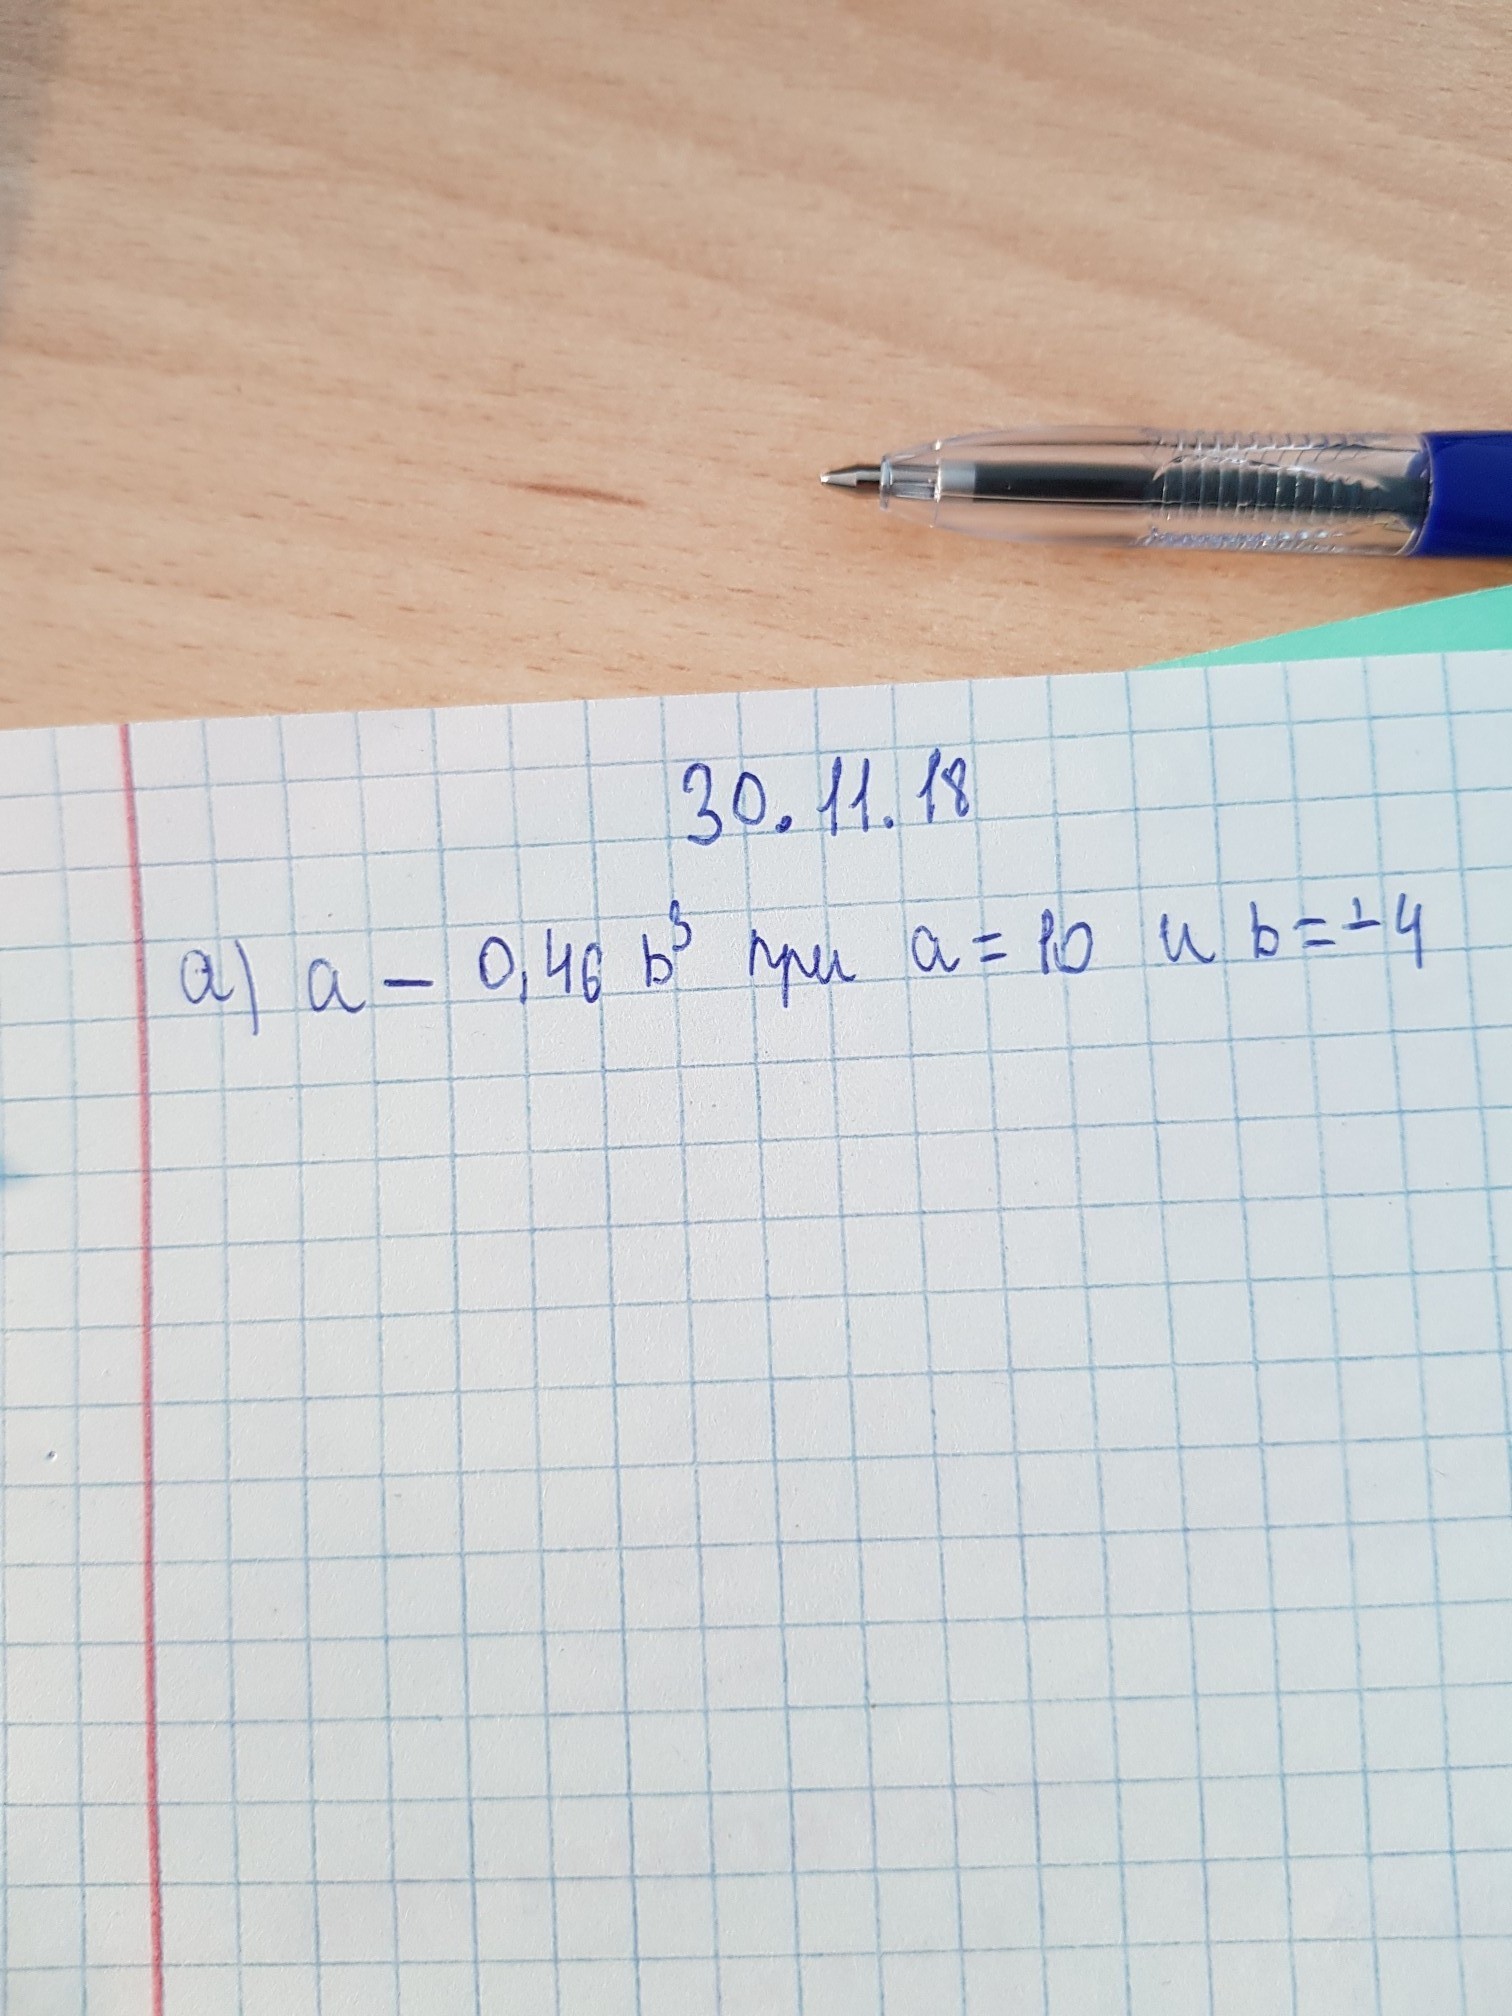 30.11.18
а) a - 0,46 b³ при a = 10 и b = -4